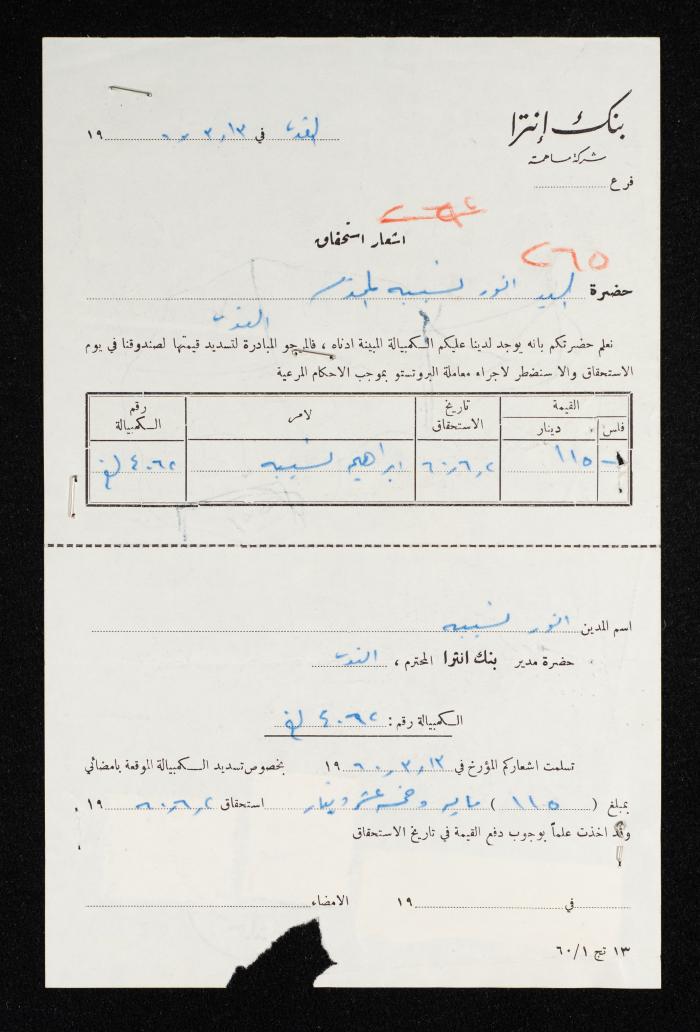 بنك إنترا
شركة مساهمة
فرع
القدس في ١٣ / ٣ / ٦٠ ١٩
اشعار استحقاق
٢٦٥
حضرة السيد انور نسيبه المحترم
القدس
نعلم حضرتكم بانه يوجد لدينا عليكم الكمبيالة المبينة ادناه ، فالمرجو المبادرة لتسديد قيمتها لصندوقنا في يوم
الاستحقاق والا سنضطر لاجراء معاملة البروتستو بموجب الاحكام المرعية
القيمة تاريخ الاستحقاق لامر رقم الكمبيالة
فلس دينار
- ١١٥ ٦٠/٦/٢ ابراهيم نسيبه ٤٠٦٢
اسم المدين انور نسيبه
حضرة مدير بنك انترا المحترم ، القدس
الكمبيالة رقم : ٤٠٦٢
تسلمت اشعاركم المؤرخ في ١٣ / ٣ / ٦٠ ١٩ بخصوص تسديد الكمبيالة الموقعة بامضائي
بمبلغ ( ١١٥ ) مايه وخمسة عشر دينار استحقاق ٦٠/٦/٢ ١٩
وقد اخذت علماً بوجوب دفع القيمة في تاريخ الاستحقاق
في ١٩ الامضاء
١٣ تج ٦٠/١